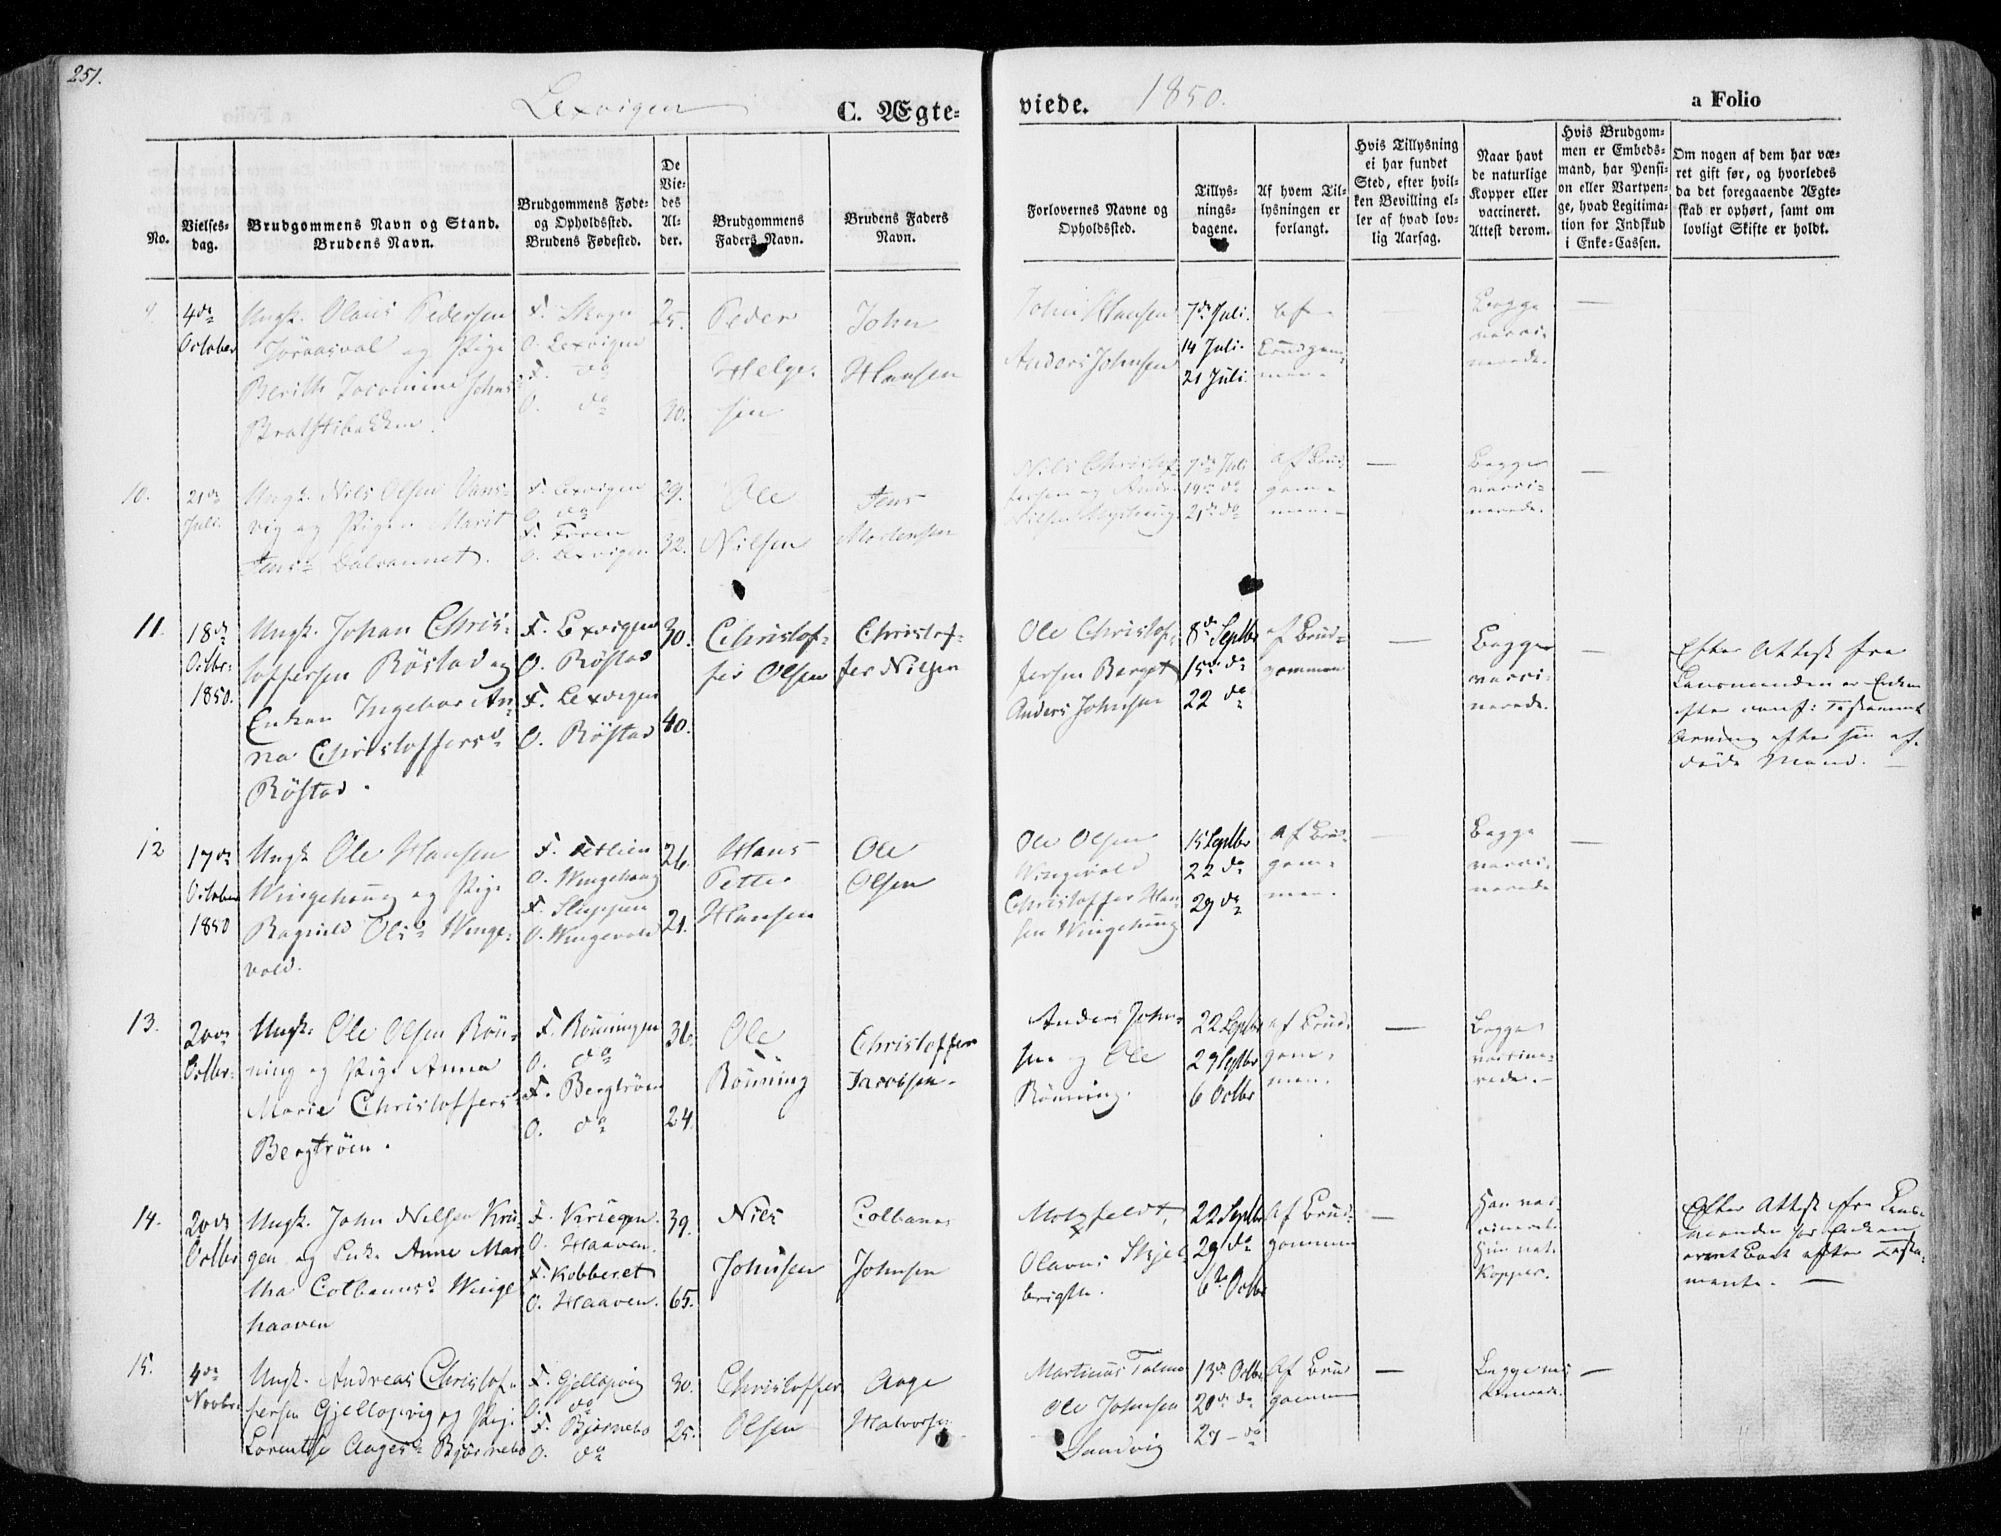 251.
Lexvigen
C. Ægte-
viede.
1850.
a Folio
No.
Vielses-
dag.
Brudgommens Navn og Stand.
Brudens Navn.
Brudgommens Føde-
og Opholdssted.
Brudens Fødested.
De
Vie-
des
Al-
der.
Brudgommens
Faders Navn.
Brudens Faders
Navn.
Forlovernes Navne og
Opholdssted.
Tillys-
nings-
dagene.
Af hvem Til-
lysningen er
forlangt.
Hvis Tillysning
ei har fundet
Sted, efter hvil-
ken Bevilling el-
ler af hvad lov-
lig Aarsag.
Naar havt
de naturlige
Kopper eller
vaccineret.
Attest derom.
Hvis Brudgom-
men er Embeds-
mand, har Pensi-
on eller Vartpen-
ge, hvad Legitima-
tion for Indskud
i Enke-Cassen.
Om nogen af dem har væ-
ret gift før, og hvorledes
da det foregaaende Ægte-
skab er ophørt, samt om
lovligt Skifte er holdt.
9.
4de
October
Ungk. Olaus Pedersen
og Pige
Berith Jacomine Johns
F.
O. Lexvigen
F. do
O. do
25.
30.
Peder
Helge-
sen
John
Hansen
John Hansen
Anders Johnsen
7de Juli.
14 Juli.
21 Juli.
af
Brudgom-
men
Begge
vacci-
nerede.
—
10.
21de
Juli
Ungk. Nils Olsen Vans-
vig og Pigen Marit
Jensd. Dalvannet.
F. Lexvigen
O. do
F.
O. Lexvigen
29.
32.
Ole
Nilsen
Jens
Mortensen
Nils Christof-
fersen og
7de Juli
14de do
21de do
af Brud-
gom-
men
—
Begge
vacci-
nerede.
—
11.
18de
Octbr.
1850.
Ungk. Johan Chris-
toffersen Röstad og
Enken Ingebor An-
na Christoffersd.
Röstad.
F. Lexvigen
O. Röstad
F. Lexvigen
O. Röstad
30.
40.
Christof-
fer Olsen
Christof-
fer Nilsen
Ole Christof-
fersen Berget
Anders Johnsen
8de Septbr
15de do
22 do
af Brud-
gommen
—
Begge
vacci-
nerede.
—
Efter Attest fra
Lensmanden er Enken
efter conf: Testament
Arving efter sin af-
døde Mand. —
12
17de
October
1850
Ungk Ole Hansen
Wingehaug og Pige
Ragnild Olsd. Winge-
vold.
F.
O. Wingehaug
F. Sluppen
O. Wingevold
26.
21.
Hans
Petter
Hansen
Ole
Olsen
Ole Olsen
Wingevold
Christoffer Han-
sen Wingehaug
15 Septbr
22 do
29 do
af Brud-
gom-
men.
—
Begge
vacci-
nerede
—
13.
20de
Octbr.
Ungk. Ole Olsen Rön-
ning og Pige Anna
Marie Christoffersd.
Bergtröen.
F. Rönningen
O. do
F. Bergtröen
O. do
36.
24.
Ole
Rönning
Christoffer
Jacobsen.
Anders John-
sen og Ole
Rönning.
22 Septbr
29 Septbr
6 Octbr
af Brud-
gom-
men.
—
Begge
vaccine-
rede.
14.
20de
Octbr
Ungk. John Nilsen Krü-
gen og Enke Anne Mar-
tha Colbanusd. Winge
haaven
F. Krügen.
O. Haaven.
F. Kobberet
O. Haaven.
39.
65.
Niels
Johnsen
Colbanus
Johnsen
Motzfeldt,
Olavus Skjel-
brigtn.
22 Septbr
29 do
6te Octbr
Af Brud-
gommen
—
Han vac-
cineret
Hun nat.
Kopper.
Efter Attest fra Lens-
manden for Enken
efter Testa-
mente. —
15.
4de
Novbr.
Ungk. Andreas Christof-
fersen Gjellopvig og Pige
Lorentse Aagesd. Björnebo
F. Gjellopvig
O. do
F. Björnebo
O. do
30.
25.
Christoffer
Olsen
Aage
Halvorsen
Martinus
Ole Johnsen
Sandvig
13de Octbr
20de do
27 – do
Af Brud
gommen
—
Begge vac
cinerede.
—